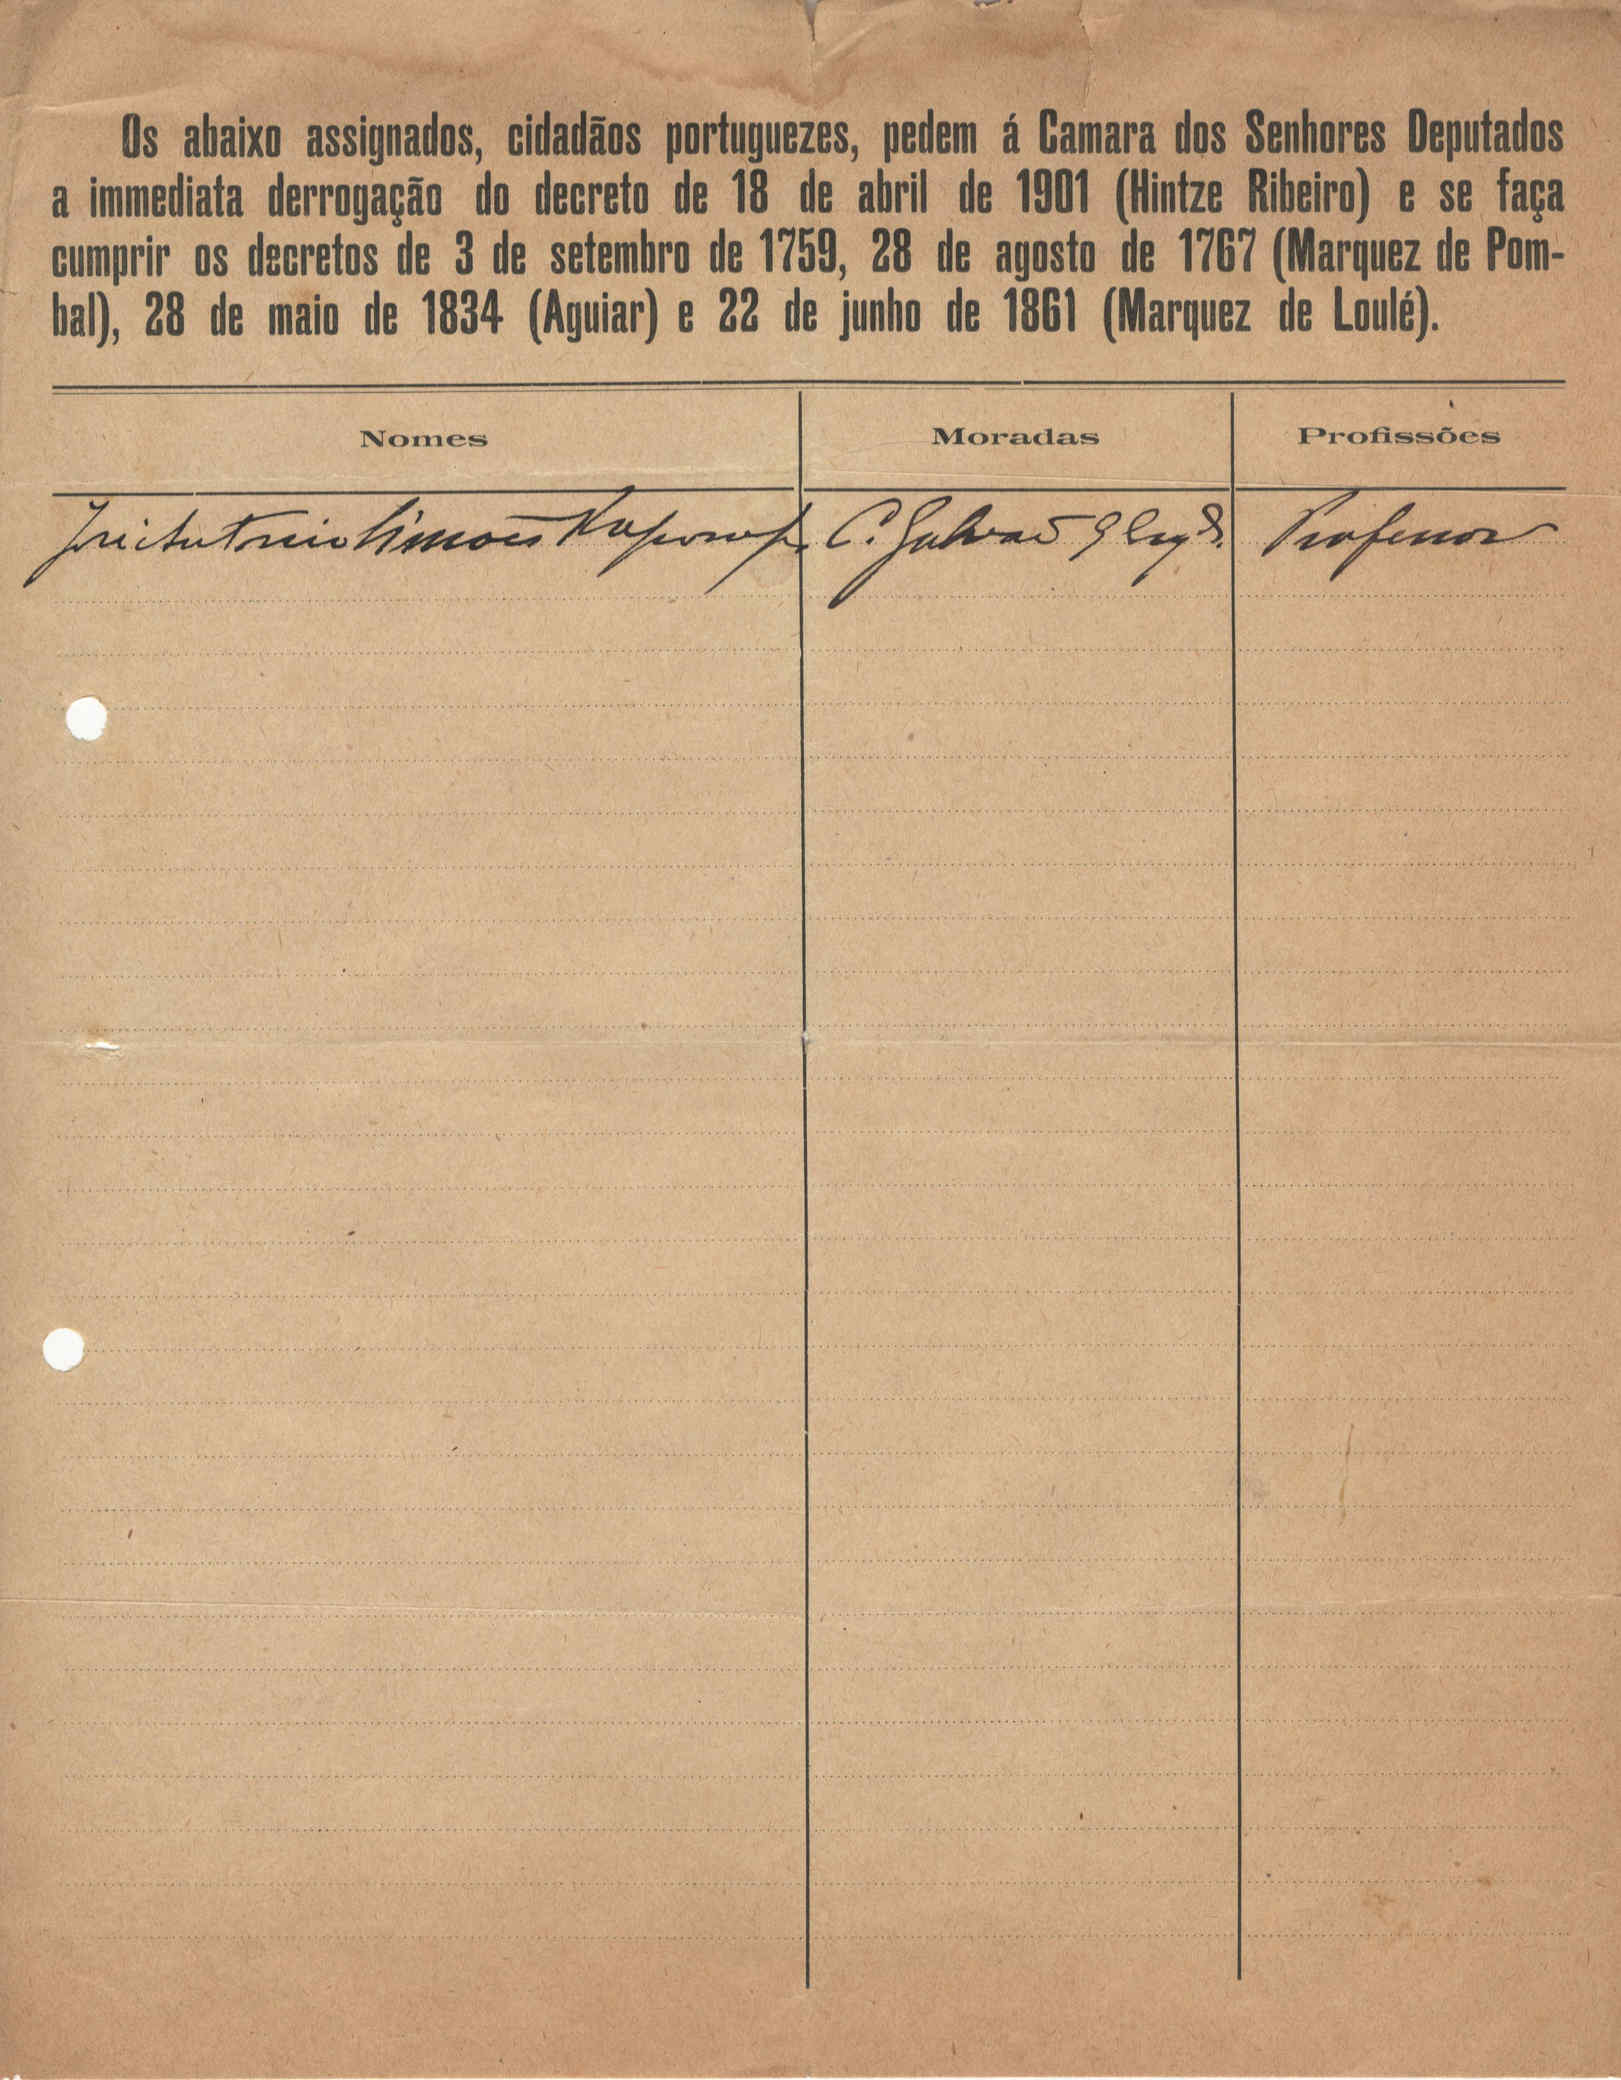 Os abaixo assignados, cidadãos portuguezes, pedem á Camara dos Senhores Deputados
a immediata derrogação do decreto de 18 de abril de 1901 (Hintze Ribeiro) e se faça
cumprir os decretos de 3 de setembro de 1759, 28 de agosto de 1767 (Marquez de Pom-
bal), 28 de maio de 1834 (Aguiar) e 22 de junho de 1861 (Marquez de Loulé).
Nomes Moradas Profissões
José Antonio Simões Raposo C. Galvão 9 Professor